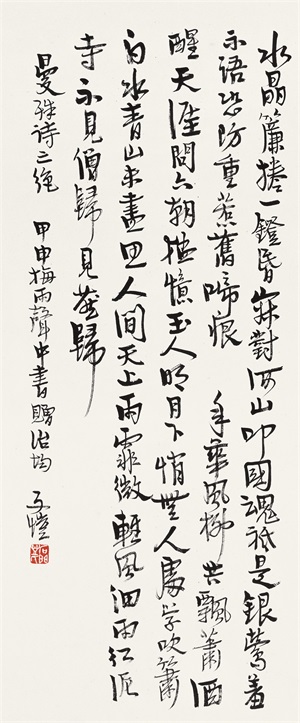 水晶簾捲一鐙昏寂對河山叩國魂祇是銀鶯羞
不語恐防重惹舊啼痕 年華風柳共飄蕭酒
醒天涯問六朝猛憶玉人明月下悄無人處學吹簫
白水青山未盡思人間天上雨霏微輕風細雨紅泥
寺不見僧歸見燕歸
曼殊詩三絕 甲申梅雨聲中書贈治均 子愷